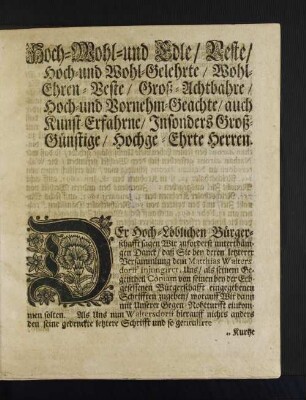 Hoch-Wohl-und Edle/ Veste/
Hoch und Wohl-Gelehrte/ Wohl-
Ehren-Veste/ Groß-Achtbahre/
Hoch-und Vornehm-Geachte/ auch
Kunst Erfahrne/ Insonders Groß-
Günstige/ Hochge-Ehrte Herren.
DEr Hoch-Löblichen Bürger-
schafft sagen Wir zuforderst unterthäni-
gen Danck/ daß Sie bey deren letzteren
Versammlung dem Matthias Wolters-
dorff injungiret/ Uns/ als seinem Ge-
gentheil Copiam von seinen bey der Erb-
gesessenen Bürgerschafft eingegebenen
Schrifften zugeben/ worauff Wir dann
mit Unserer Gegen-Nohtturfft einkom-
men solten. Als Uns nun Woltersdorff hierauff nichts anders
den seine gedruckte letztere Schrifft und so
Kurtze